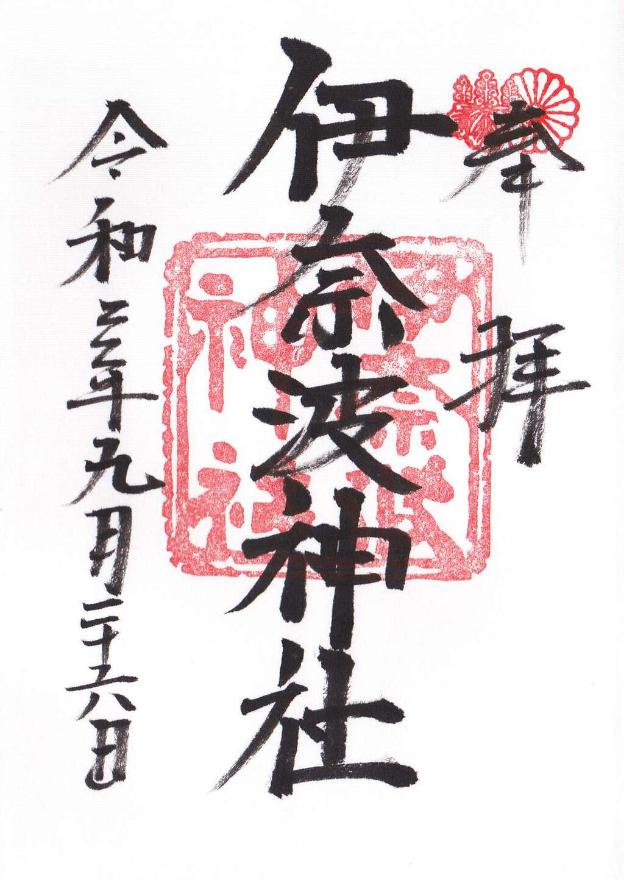 奉拝
伊奈波神社
令和三年九月二十六日
伊奈波
神社